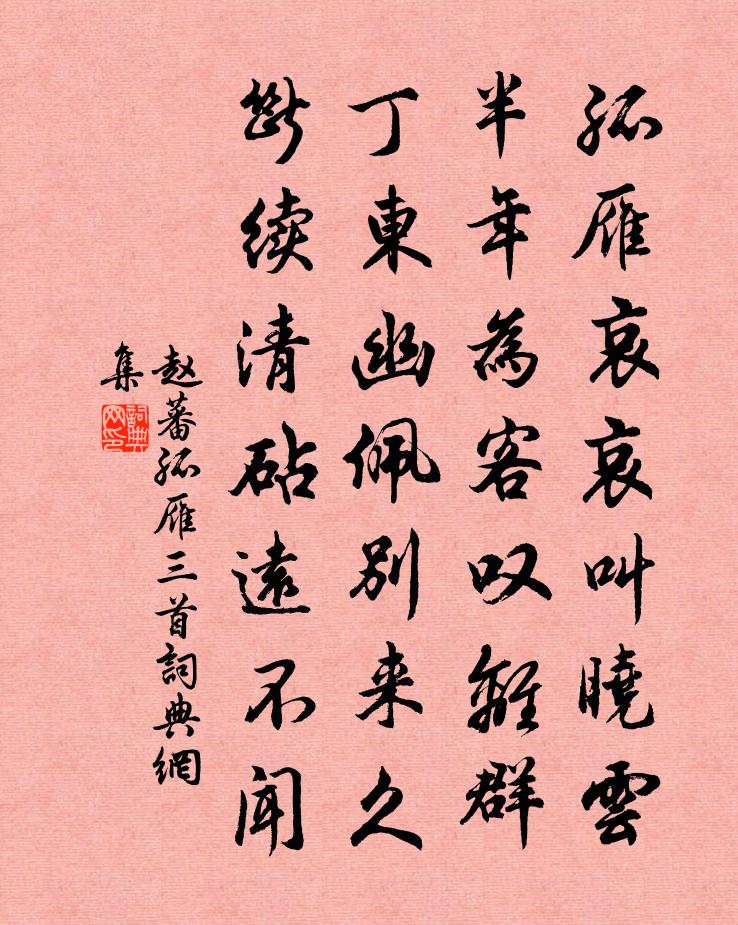 孤雁哀哀叫曉雲
半年為客叹離群
丁東幽佩別来久
斷续清砧遠不闻
赵蕃孤雁三首詞典網
集
詞典
网印